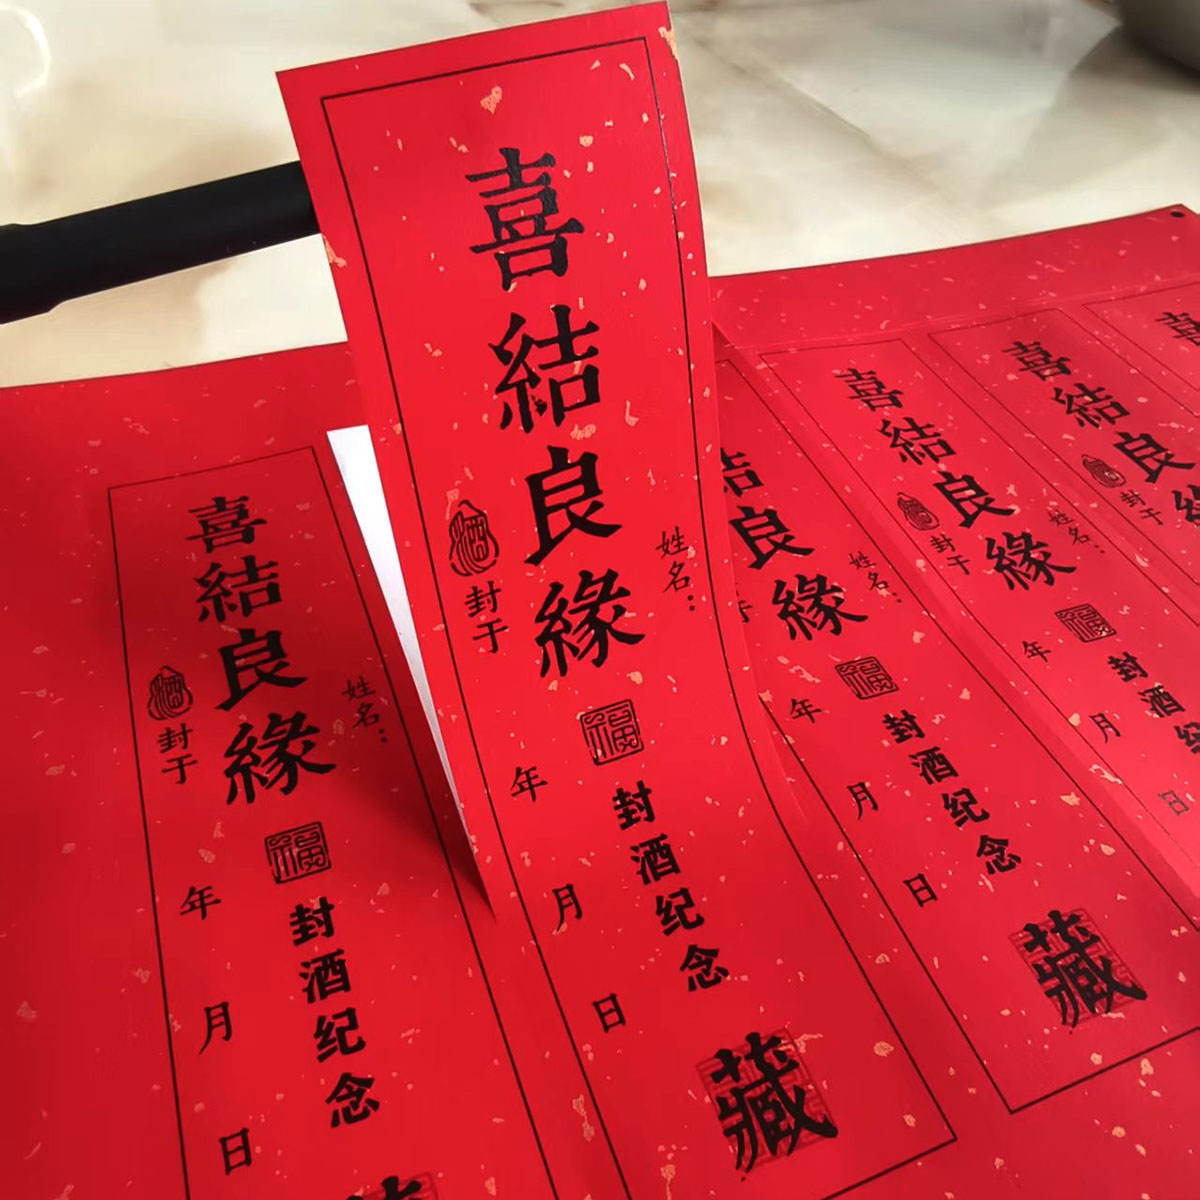 喜結良緣
姓名：
酒
封于
年
月
日
福
封酒纪念
藏
喜結良緣
姓名：
酒
封于
年
月
日
福
封酒纪念
結良緣
姓名：
年
月
日
福
封酒纪念
藏
喜結良緣
姓名：
酒
封于
年
月
日
福
封酒纪
喜結良
酒
封于
喜